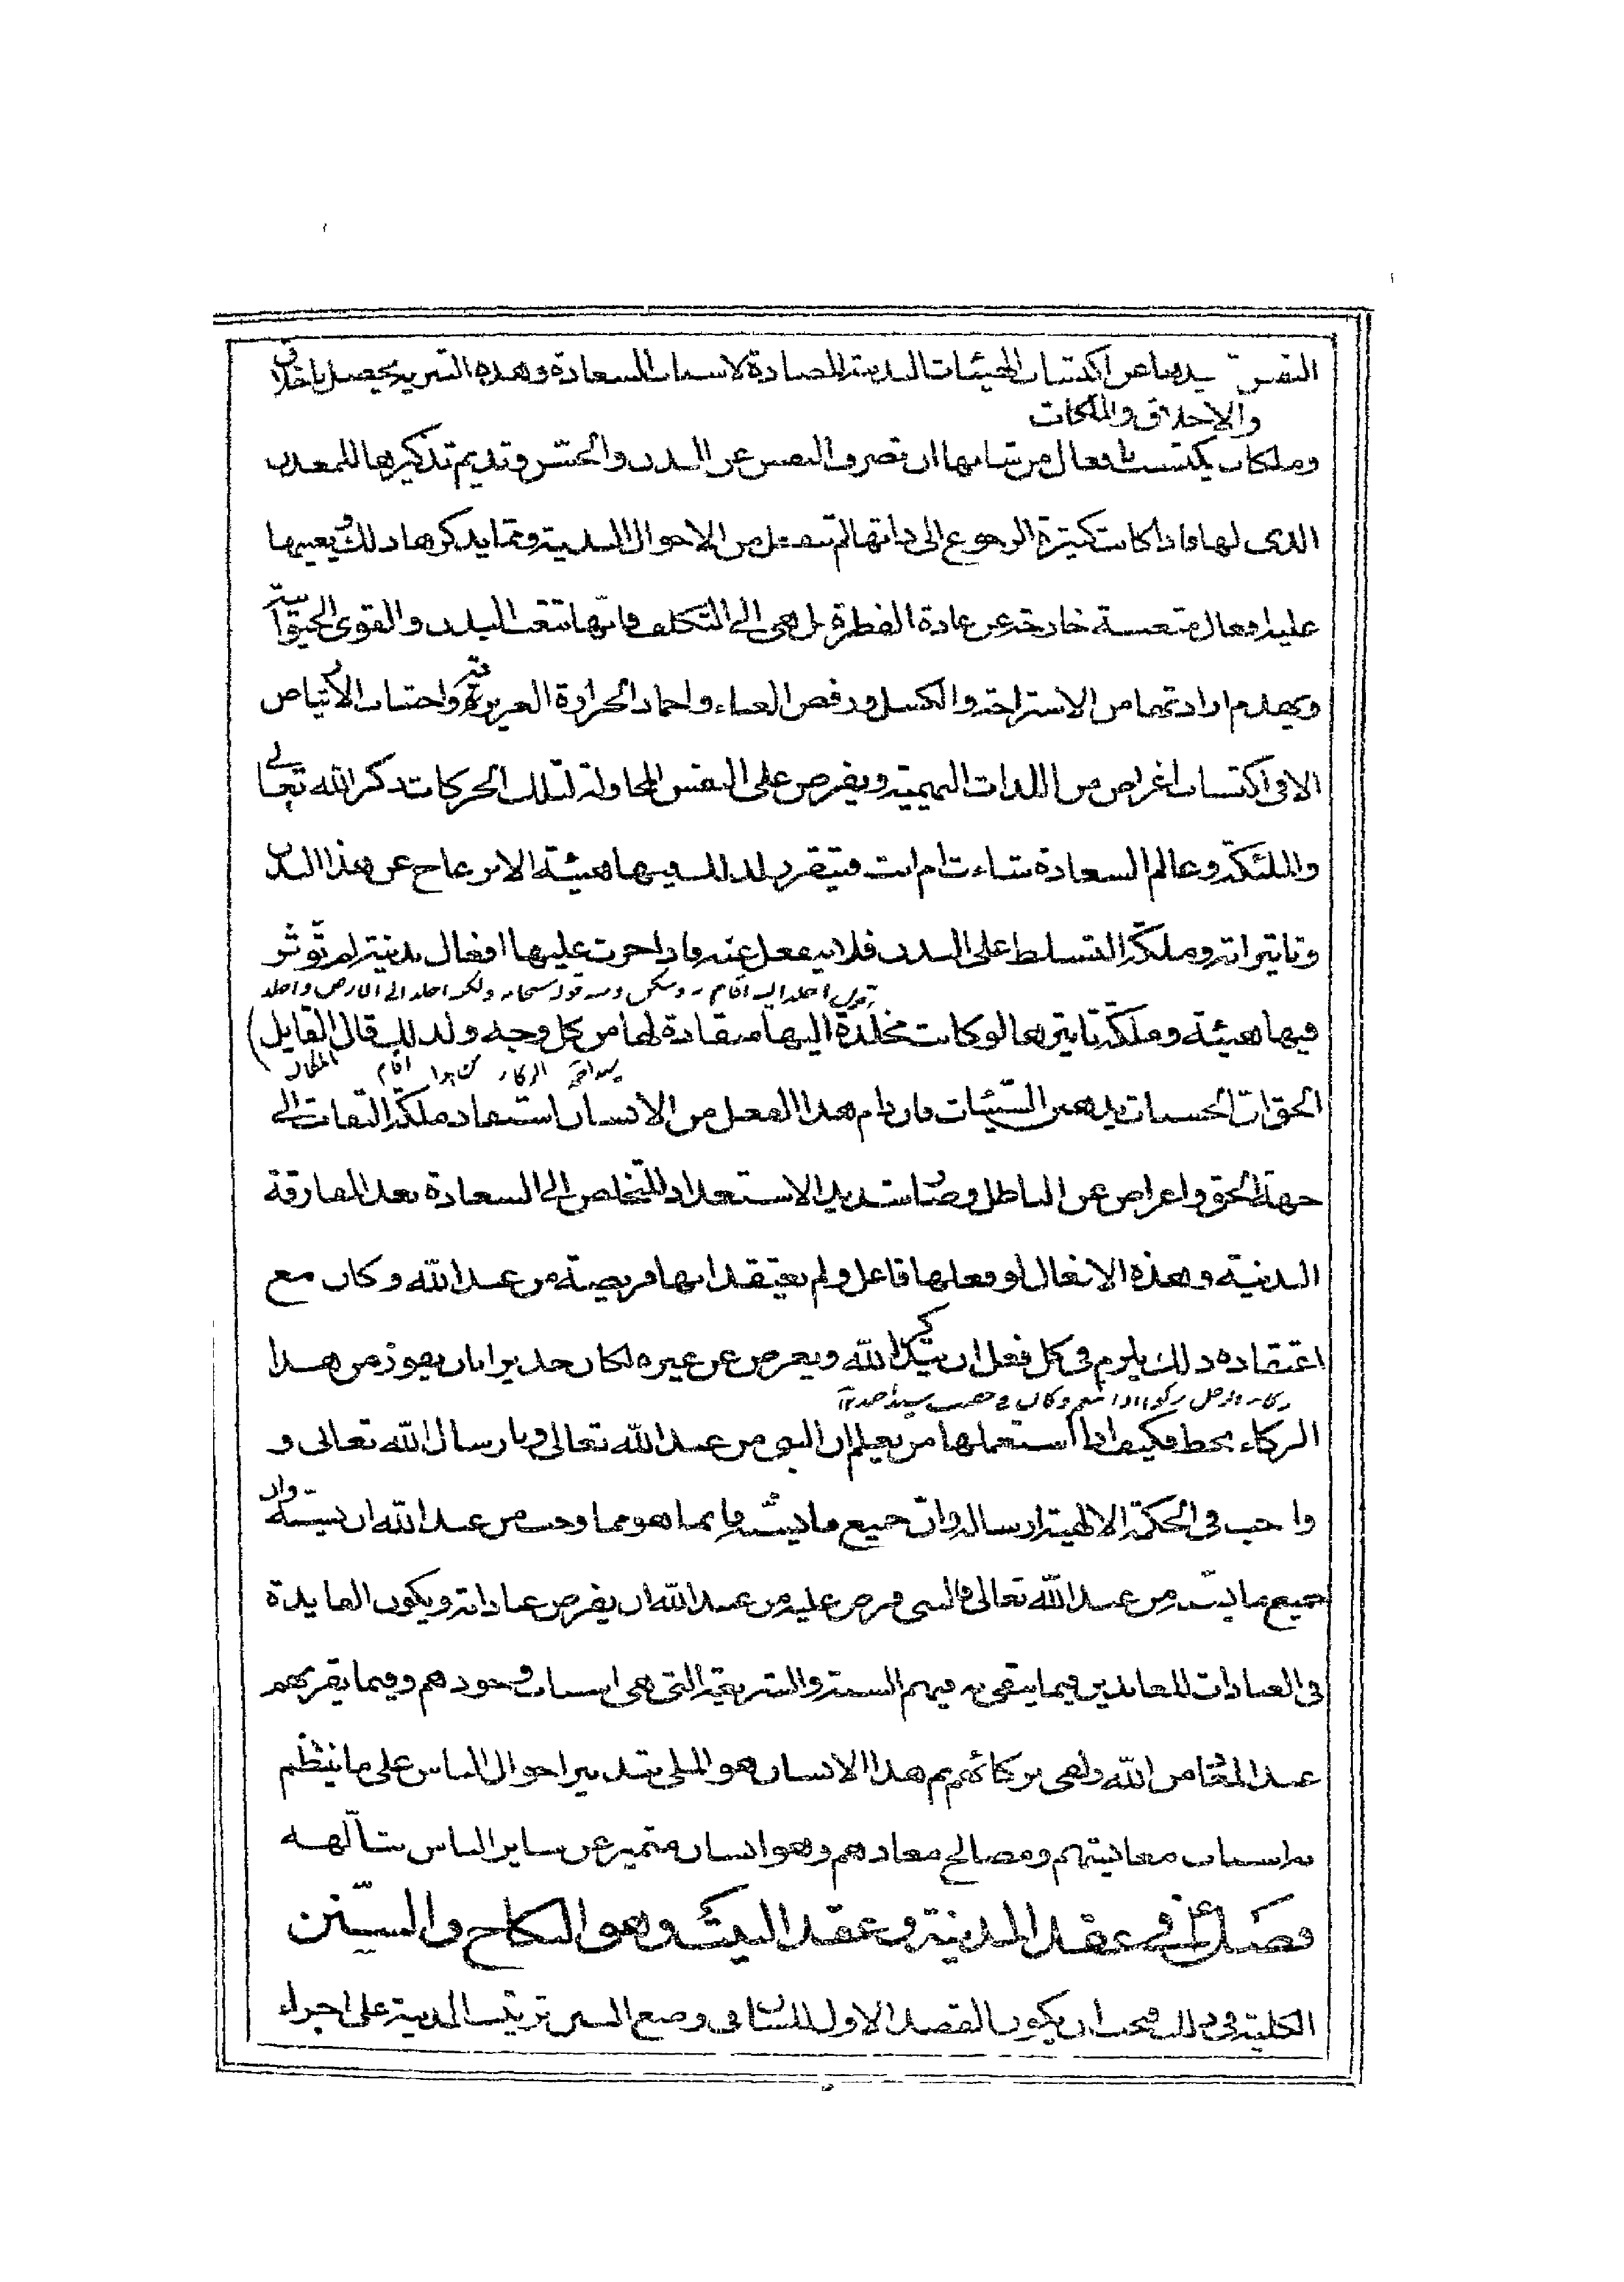 النفس يبعدها عن اكتساب الهيئات البدنية المضادة لاسباب السعادة وهذه التنزيه يحصل باخلاق
والاخلاق والملكات
وملكات يكتسب بافعال من شانها ان تصرف النفس عن البدن والحس وتديم تذكيرها للمعدن
الذى لها فاذا كانت كثيرة الرجوع الى ذاتها لم تنفعل من الاحوال البدنية ومما يذكرها ذلك ويعينها
عليه افعال متعسة خارجة عن عادة الفطرة بل هى الى التكلف فانها تتعب البدن والقوى الحيوانية
ويهدم ارادتها من الاستراحة والكسل ورفض العناء واخماد الحرارة الغريزية واجتناب الارتياض
الا فى اكتساب اغراض من اللذات البهيمية ويفرض على النفس المحاولة لتلك الحركات ذكر الله تعالى
والملئكة وعالم السعادة شاءت ام ابت فيتقرر لذلك فيها هيئة الانزعاج عن هذا البدن
وتاثيراته وملكة التسلط على البدن فلا ينفعل عنه فاذا جرت عليها افعال بدنية لم تؤثر
يقول اخلد اليه اقام به وسكن ومنه قوله سبحانه ولكنه اخلد الى الارض واخلد
فيها هيئة وملكة تاثيرها لو كانت مخلدة اليها منقادة لها من كل وجه ولذلك قال القايل
اقام المكان
الحق ان الحسنات يذهبن السيئات فان دام هذا الفعل من الانسان استفاد ملكة التفات الى
جهة الحق واعراض عن الباطل وصار شديد الاستعداد للتخلص الى السعادة بعد المفارقة
البدنية وهذه الافعال لو فعلها فاعل ولم يعتقد انها فريضة من عند الله وكان مع
اعتقاده ذلك يلزم فى كل فعل ان يتذكر الله ويعرض عن غيره لكان جديرا بان يفوز من هذا
الزكاء بحظ فكيف اذا استعملها من يعلم ان النبى من عند الله تعالى وبارسال الله تعالى و
واجب فى الحكمة الالهية ارساله وان جميع ما يسنه فانما هو مما وجب من عند الله ان يسنه وان
جميع ما يسنه من عند الله تعالى فالنبى فرض عليه من عند الله ان يفرض عباداته ويكون الفايدة
فى العبادات للعابدين فيما يبقى به فيهم السنة والشريعة التى هى اسباب وجودهم وفيما يقربهم
عند المعاد من الله زلفى بزكائهم ثم هذا الانسان هو الملى بتدبير احوال الناس على ما ينتظم
به اسباب معايشهم ومصالح معادهم وهو انسان متميز عن ساير الناس بتالهه
فصل فى عقد المدينة وعقد البيت وهو النكاح والسنن
الكلية فى ذلك فيجب ان يكون القصد الاول للسان فى وضع السنن ترتيب المدينة على اجزاء